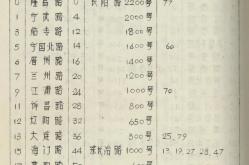 0 隆昌路 0 长阳路 2200号 77
1 宁武路 4 2000号
3 临青路 12 1800号
5 宁国北路 14 1600号 60
6 眉州路 16 1400号
7 兰州路 20 1200号
9 江浦路 24 1000号 70
11 许昌路 28 800号
12 辽阳路 32 650号
13 大连路 36 300号 25, 79
15 海门路 44 东长治路 1000号 13, 19, 27, 28, 47
800号